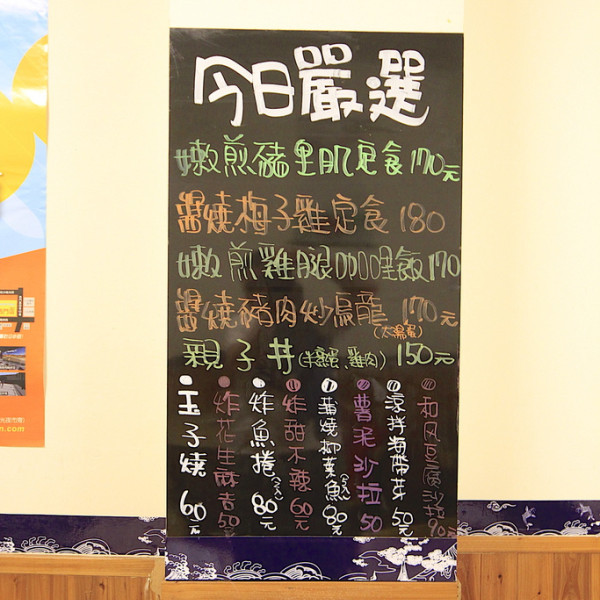 今日嚴選
嫩煎豬里肌定食170元
醬燒梅子雞定食180
嫩煎雞腿咖哩飯170
醬燒豬肉炒烏龍170元
(太陽蛋)
親子丼(半熟蛋、雞肉)150元
玉子燒60元
炸花生麻吉50元
炸魚捲80元
炸甜不辣60元
蒲燒柳葉魚80元
薯泥沙拉50
涼拌海帶芽50元
和风豆腐沙拉90元